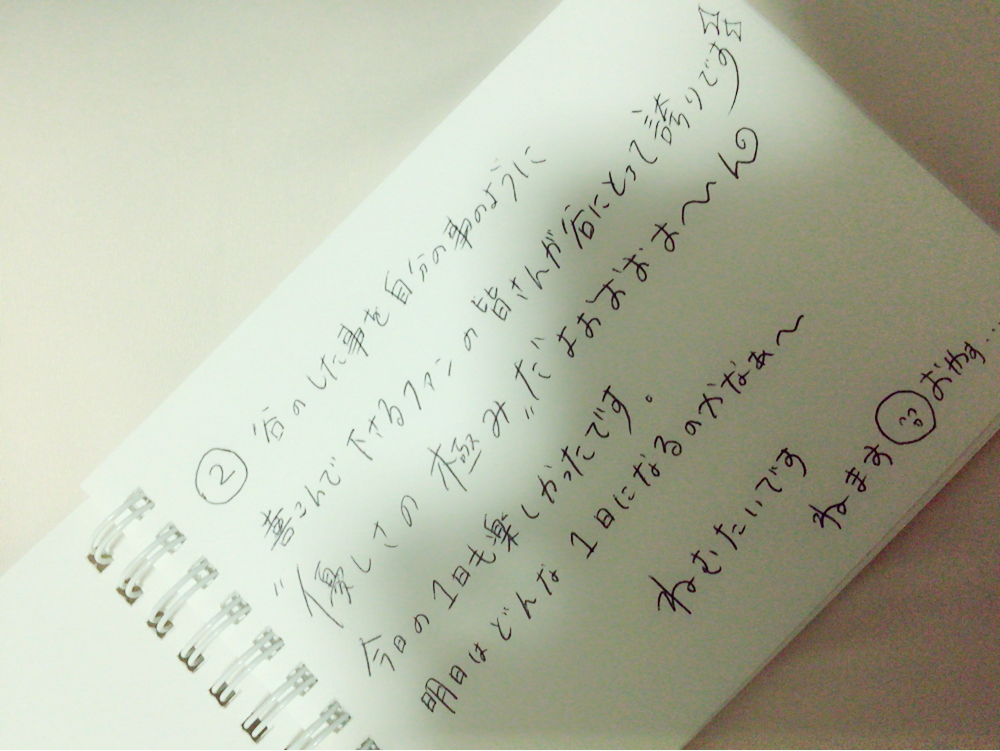 ② 谷のした事を自分の事のように
喜こんで下さるファンの皆さんが谷にとって誇りです
"優しさの極み"だよおおおお〜〜ん
今日の1日も楽しかったです。
明日はどんな1日になるのかなぁ〜
ねむたいです
ねます おやす…